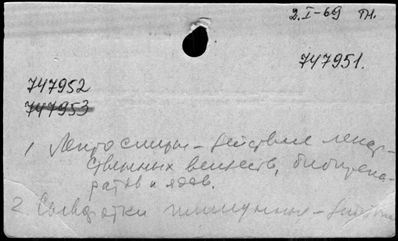 2.I-69 тн.
747951.
747952
747953
1 Лептоспиры - действие лекар-
ственных веществ, биопрепа-
ратов и ядов.
2 Сыворотки иммунные - действие